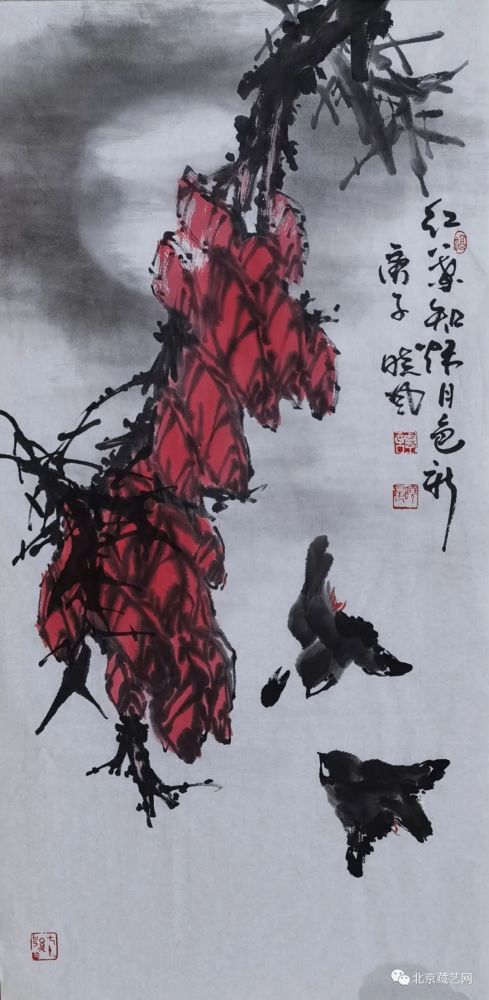 红葉知秋月色新
庚子 晓风
北京藏艺网